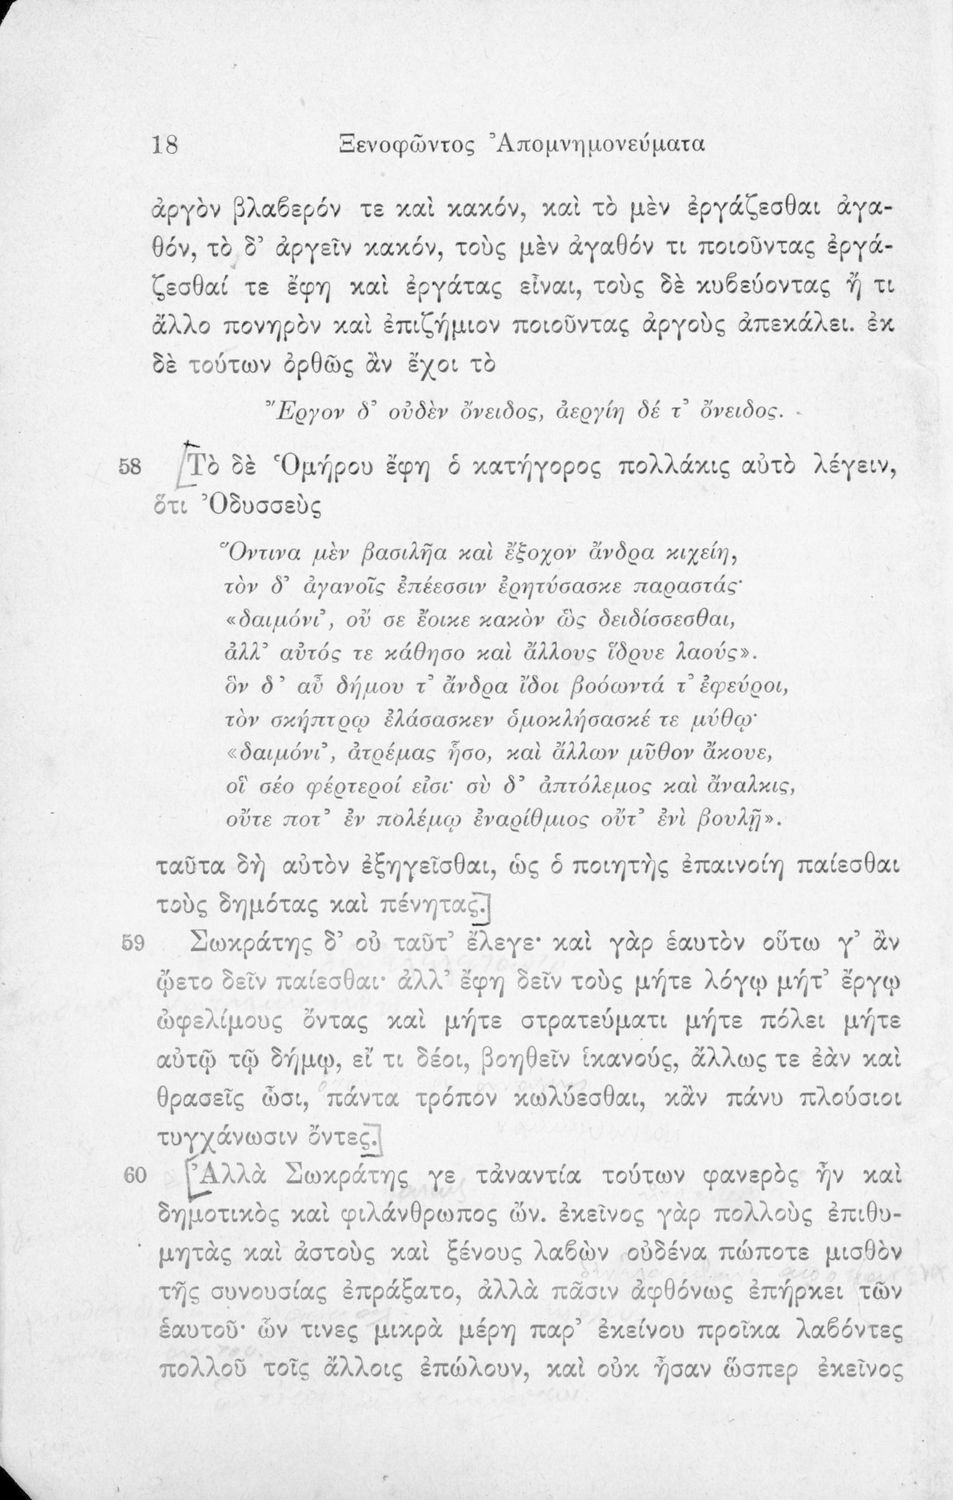 18 Ξενοφῶντος Ἀπομνημονεύματα
ἀργὸν βλαϐερόν τε καὶ κακόν, καὶ τὸ μὲν ἐργάζεσθαι ἀγα-
θόν, τὸ δ’ ἀργεῖν κακόν, τοὺς μὲν ἀγαθόν τι ποιοῦντας ἐργά-
ζεσθαί τε ἔφη καὶ ἐργάτας εἶναι, τοὺς δὲ κυϐεύοντας ἤ τι
ἄλλο πονηρὸν καὶ ἐπιζήμιον ποιοῦντας ἀργοὺς ἀπεκάλει. ἐκ
δὲ τούτων ὀρθῶς ἂν ἔχοι τὸ
Ἔργον δ’ οὐδὲν ὄνειδος, ἀεργίη δέ τ’ ὄνειδος.
58 [Τὸ δὲ Ὁμήρου ἔφη ὁ κατήγορος πολλάκις αὐτὸ λέγειν,
ὅτι Ὀδυσσεὺς
Ὅντινα μὲν βασιλῆα καὶ ἔξοχον ἄνδρα κιχείη,
τὸν δ’ ἀγανοῖς ἐπέεσσιν ἐρητύσασκε παραστάς·
«δαιμόνι’, οὔ σε ἔοικε κακὸν ὣς δειδίσσεσθαι,
ἀλλ’ αὐτός τε κάθησο καὶ ἄλλους ἵδρυε λαούς».
ὃν δ’ αὖ δήμου τ’ ἄνδρα ἴδοι βοόωντά τ’ ἐφεύροι,
τὸν σκήπτρῳ ἐλάσασκεν ὁμοκλήσασκέ τε μύθῳ·
«δαιμόνι’, ἀτρέμας ἧσο, καὶ ἄλλων μῦθον ἄκουε,
οἳ σέο φέρτεροί εἰσι· σὺ δ’ ἀπτόλεμος καὶ ἄναλκις,
οὔτε ποτ’ ἐν πολέμῳ ἐναρίθμιος οὔτ’ ἐνὶ βουλῇ».
ταῦτα δὴ αὐτὸν ἐξηγεῖσθαι, ὡς ὁ ποιητὴς ἐπαινοίη παίεσθαι
τοὺς δημότας καὶ πένητας.]
59 Σωκράτης δ’ οὐ ταῦτ’ ἔλεγε· καὶ γὰρ ἑαυτὸν οὕτω γ’ ἂν
ᾤετο δεῖν παίεσθαι· ἀλλ’ ἔφη δεῖν τοὺς μήτε λόγῳ μήτ’ ἔργῳ
ὠφελίμους ὄντας καὶ μήτε στρατεύματι μήτε πόλει μήτε
αὐτῷ τῷ δήμῳ, εἴ τι δέοι, βοηθεῖν ἱκανούς, ἄλλως τε ἐὰν καὶ
θρασεῖς ὦσι, πάντα τρόπον κωλύεσθαι, κἂν πάνυ πλούσιοι
τυγχάνωσιν ὄντες.]
60 [Ἀλλὰ Σωκράτης γε τἀναντία τούτων φανερὸς ἦν καὶ
δημοτικὸς καὶ φιλάνθρωπος ὤν. ἐκεῖνος γὰρ πολλοὺς ἐπιθυ-
μητὰς καὶ ἀστοὺς καὶ ξένους λαϐὼν οὐδένα πώποτε μισθὸν
τῆς συνουσίας ἐπράξατο, ἀλλὰ πᾶσιν ἀφθόνως ἐπήρκει τῶν
ἑαυτοῦ· ὧν τινες μικρὰ μέρη παρ’ ἐκείνου προῖκα λαϐόντες
πολλοῦ τοῖς ἄλλοις ἐπώλουν, καὶ οὐκ ἦσαν ὥσπερ ἐκεῖνος